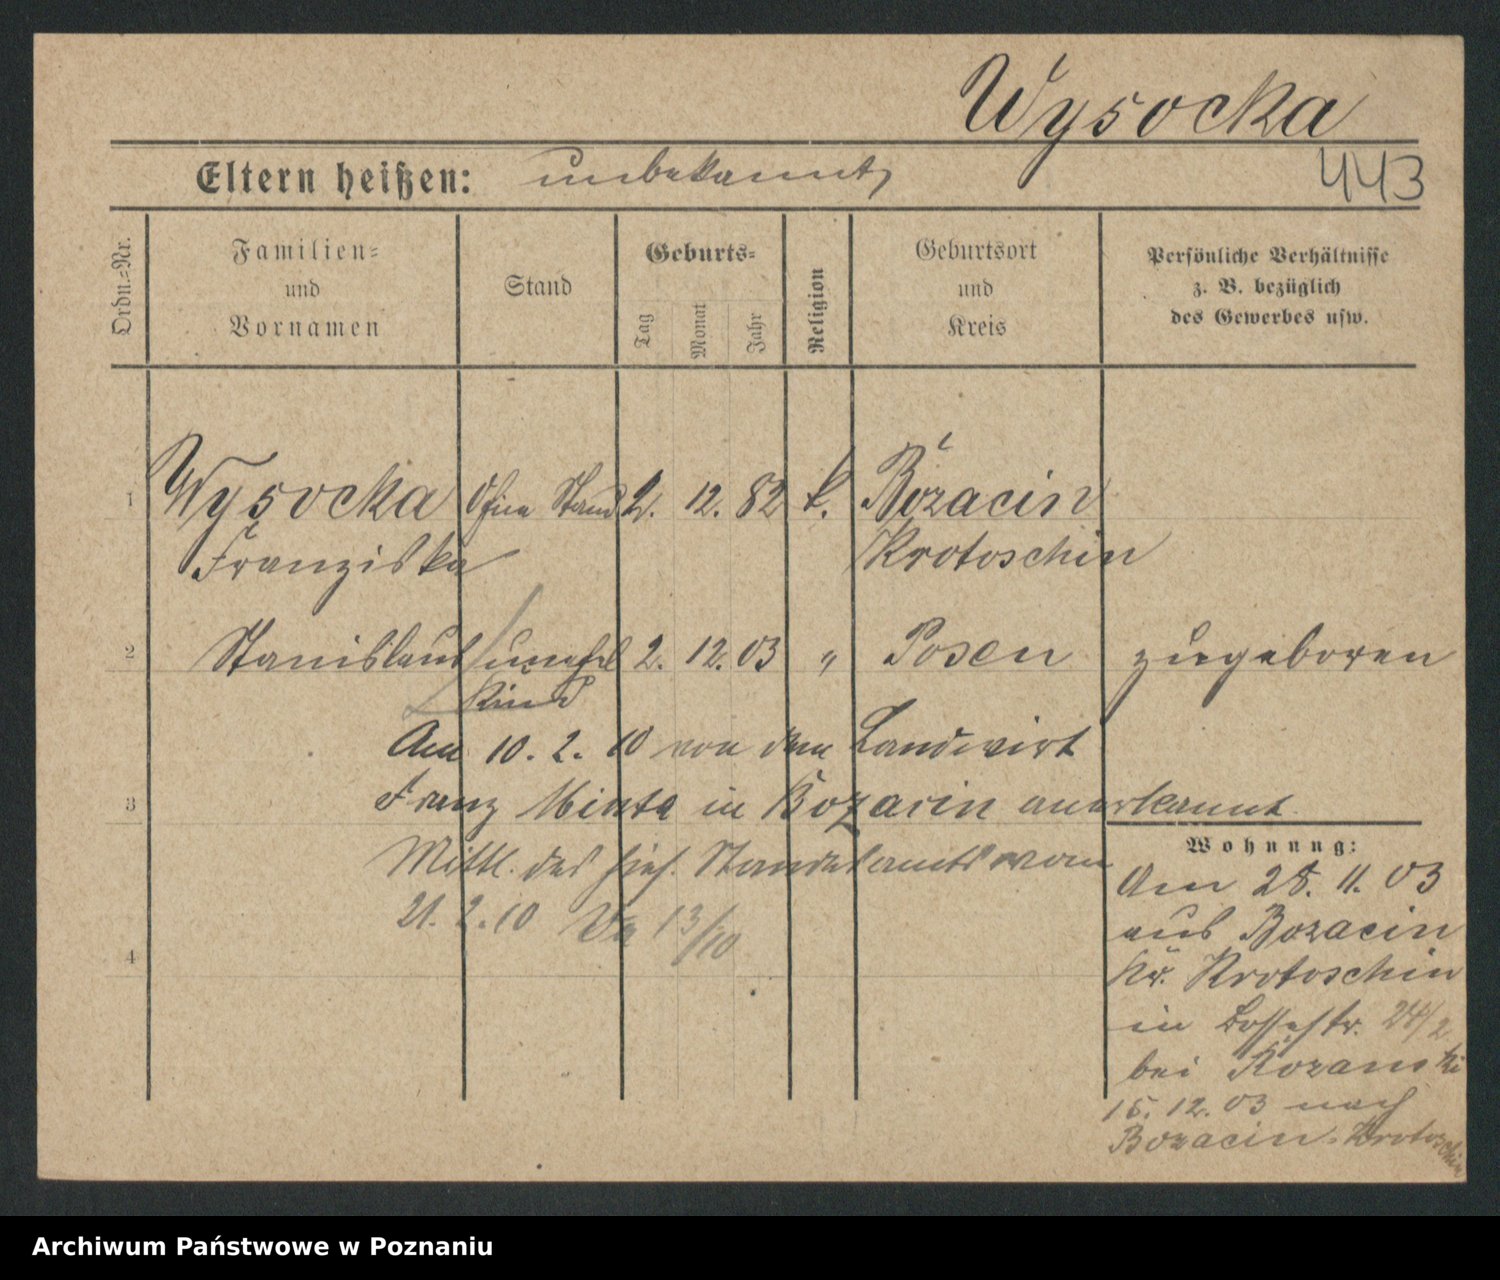 Wysocka
443
Eltern heißen: unbekannt
Ordn.-Nr.
Familien-
und
Vornamen
Stand
Geburts-
Tag
Monat
Jahr
Religion
Geburtsort
und
Kreis
Persönliche Verhältnisse
z. B. bezüglich
des Gewerbes usw.
1 Wysocka Ohne Stand 2. 12. 82 k. Bożacin
Franziska Krotoschin
2 Stanislaus unehel 2. 12. 03 " Posen zugeboren
Kind
Am 10. 2. 10 von dem Landwirt
3 Franz in Bozacin anerkannt.
Mittl. des hies. Standesamts vom
21. 2. 10 13/10
4
Wohnung:
Am 28. 11. 03
aus Bozacin
Kr. Krotoschin
in 24/2
bei Rózanski
15. 12. 03 nach
Bozacin. Krotoschin
Archiwum Państwowe w Poznaniu